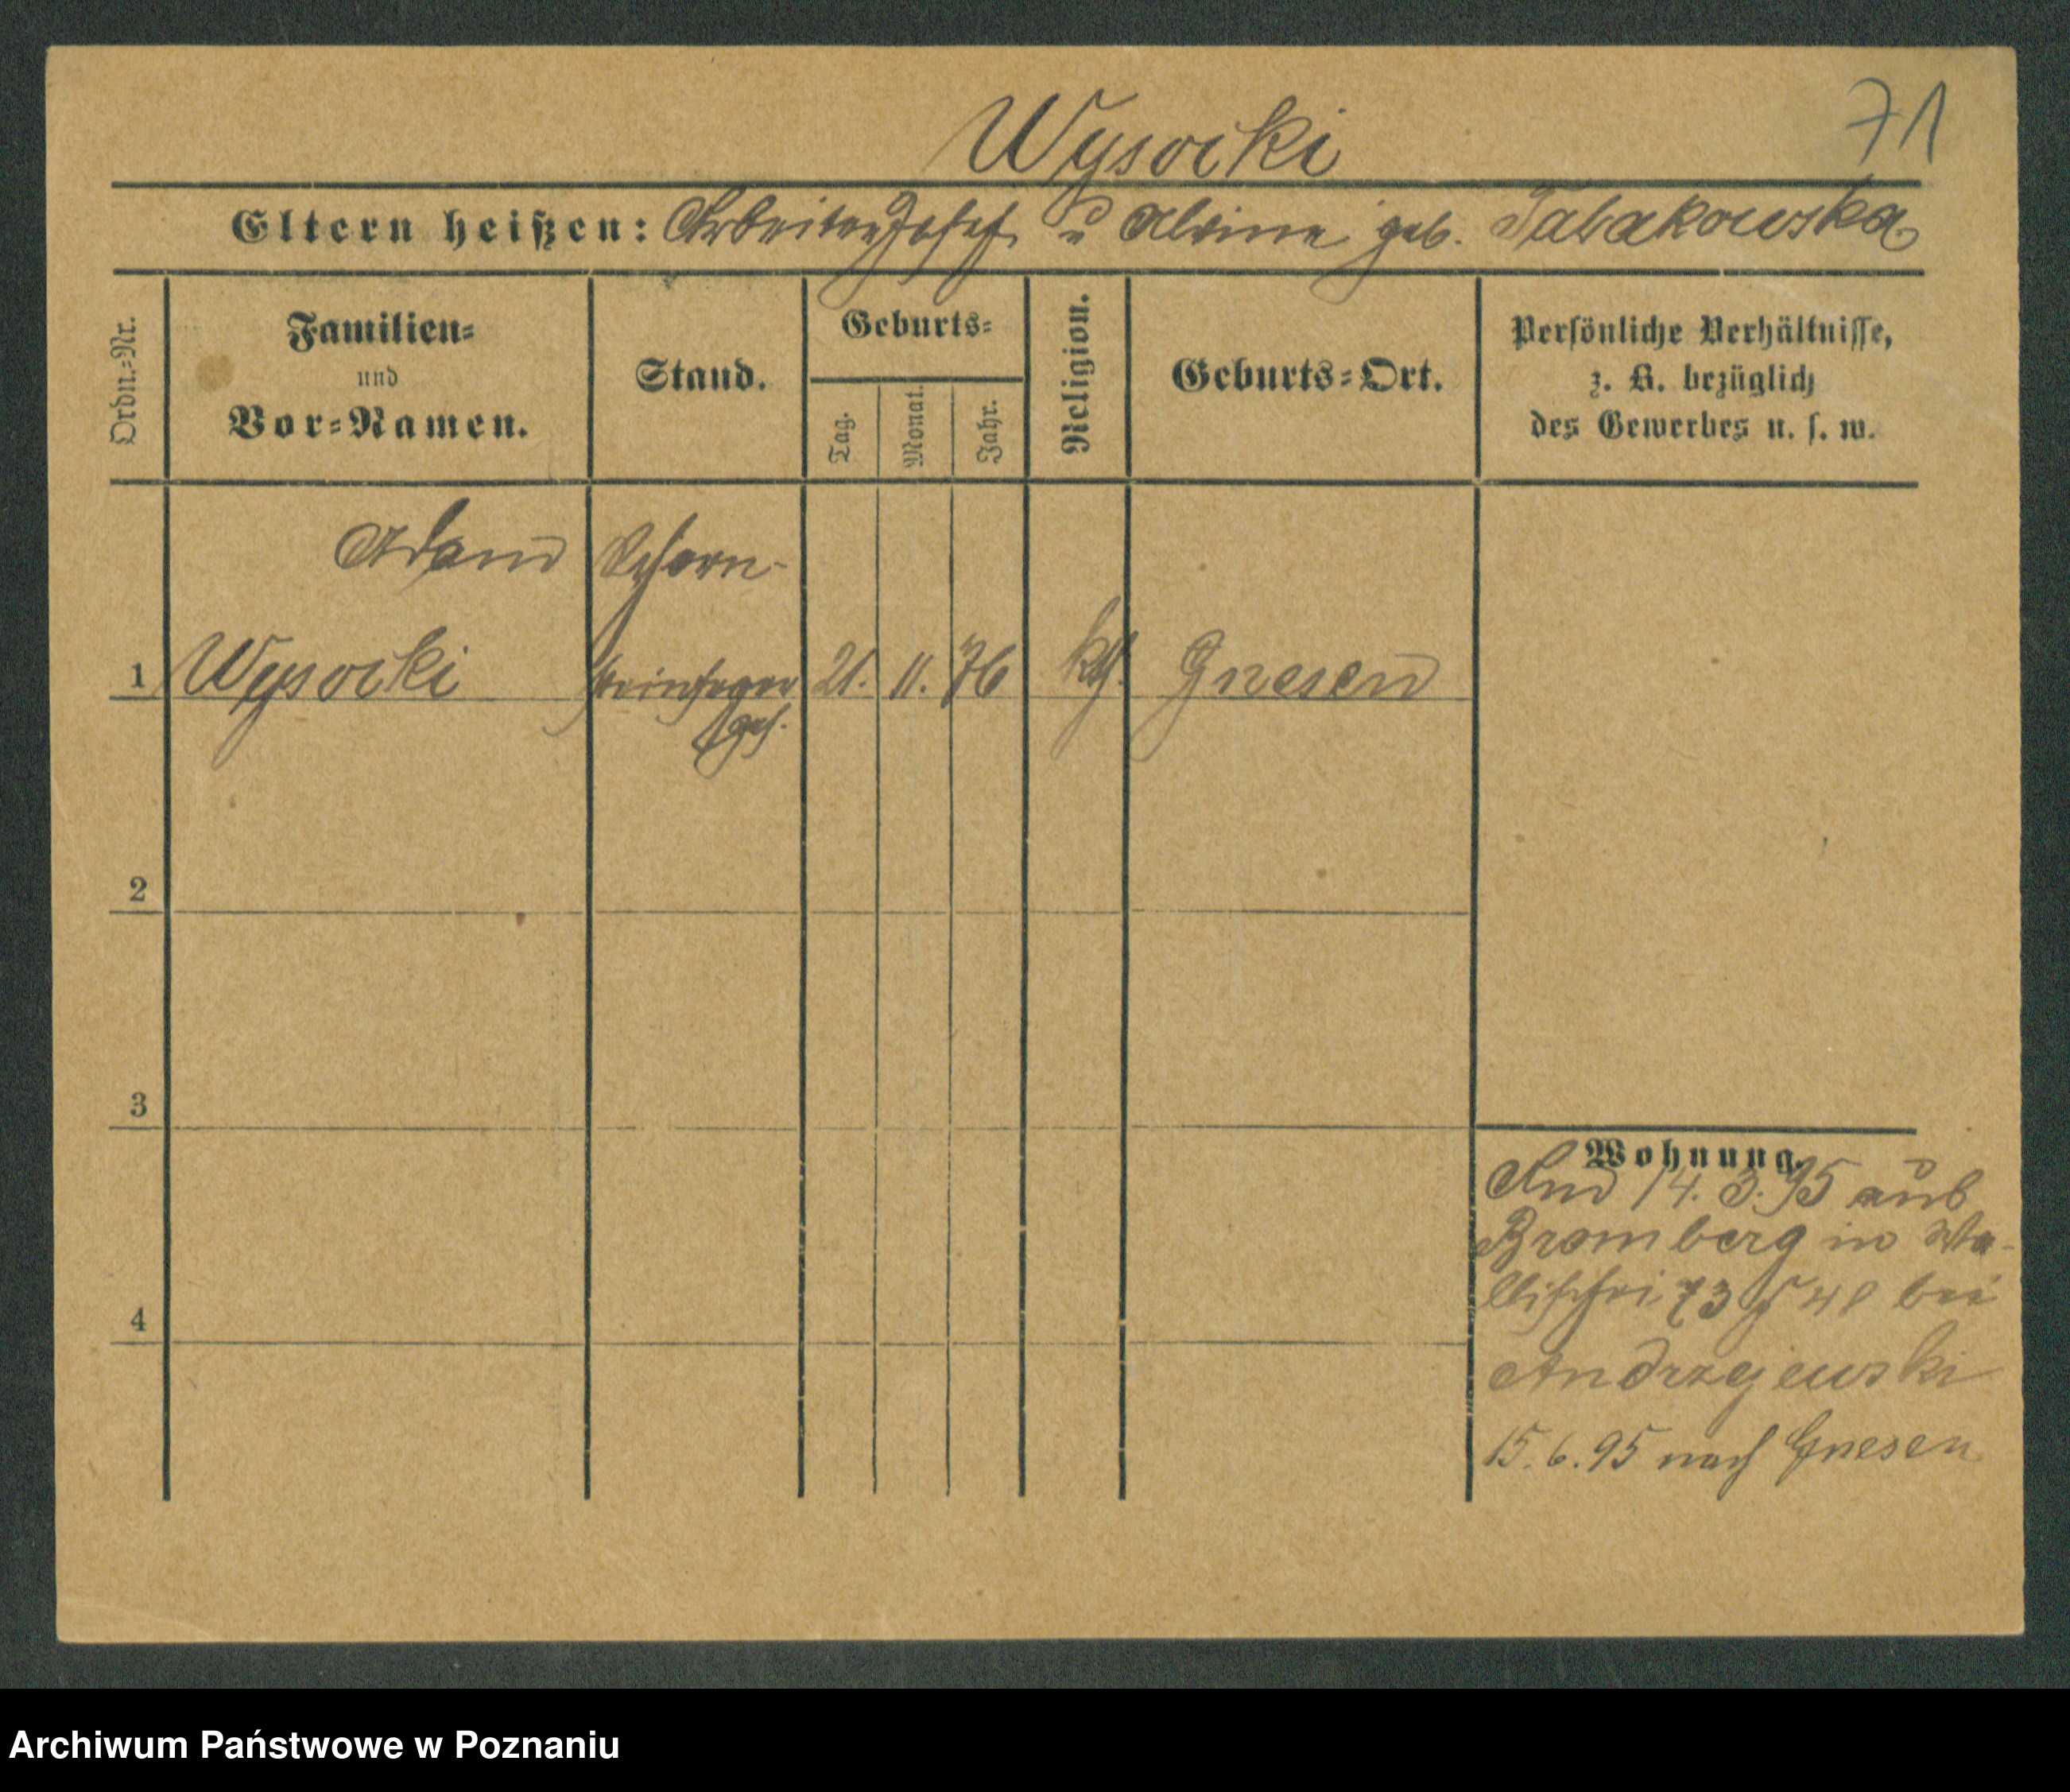 Wysocki
71
Eltern heißen: Arbeiter Josef u Alvine geb. Tabakowska
Ordn.-Nr.
Familien-
und
Vor-Namen.
Stand.
Geburts-
Tag.
Monat.
Jahr.
Religion.
Geburts-Ort.
Persönliche Verhältnisse,
z. B. bezüglich
des Gewerbes u. s. w.
Adam Schorn-
1 Wysocki steinfeger 21. 11. 76 kth. Gnesen
ges.
2
3
4
Wohnung.
14. 3. 95 aus
Bromberg in Wa-
llischei 73 bei
Andrzejewski
15. 6. 95 nach Gnesen
Archiwum Państwowe w Poznaniu